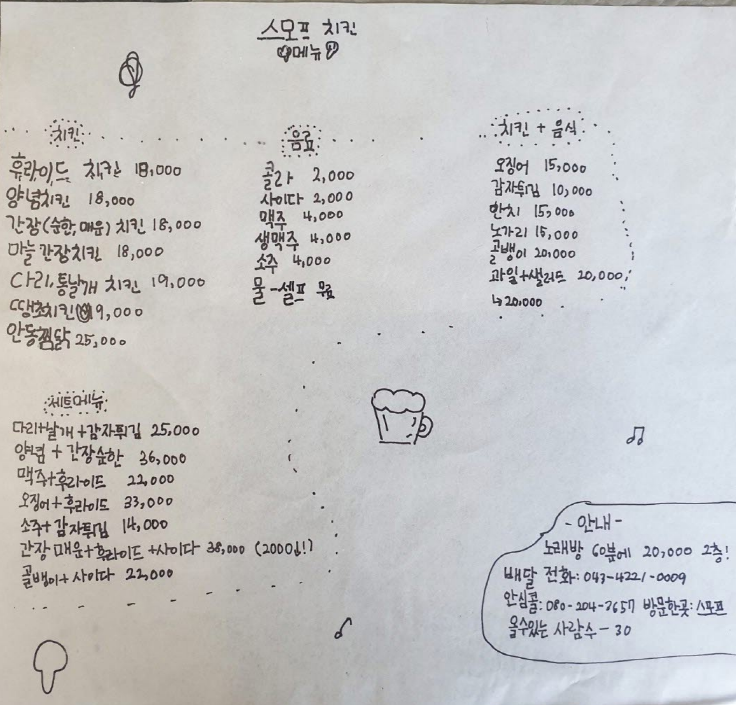 스모프 치킨
메뉴
치킨
후라이드 치킨 18,000
양념치킨 18,000
간장(순한,매운) 치킨 18,000
마늘 간장치킨 18,000
다리,통날개 치킨 19,000
땡초치킨 9,000
안동찜닭 25,000
음료
콜라 2,000
사이다 2,000
맥주 4,000
생맥주 4,000
소주 4,000
물-셀프 무료
치킨 + 음식
오징어 15,000
감자튀김 10,000
한치 15,000
노가리 15,000
골뱅이 20,000
과일+샐러드 20,000
↳20,000
세트메뉴
다리+날개+감자튀김 25,000
양념 + 간장순한 36,000
맥주+후라이드 22,000
오징어+후라이드 33,000
소주+감자튀김 14,000
간장 매운+후라이드+사이다 38,000 (2000↓!)
골뱅이+사이다 22,000
-안내-
노래방 60분에 20,000 2층!
배달 전화:043-4221-0009
안심콜:080-204-3657 방문한곳:스모프
올수있는 사람수-30